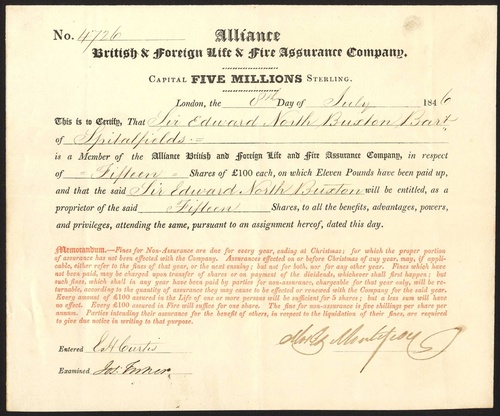 No. 4726
Alliance
British & Foreign Life & Fire Assurance Company.
Capital FIVE MILLIONS Sterling.
London, the 8th Day of July 1846
This is to Certify, That Sir Edward North Buxton Bart
of Spitalfields
is a Member of the Alliance British and Foreign Life and Fire Assurance Company, in respect
of Fifteen Shares of £100 each, on which Eleven Pounds have been paid up,
and that the said Sir Edward North Buxton will be entitled, as a
proprietor of the said Fifteen Shares, to all the benefits, advantages, powers,
and privileges, attending the same, pursuant to an assignment hereof, dated this day.
Memorandum.—Fines for Non-Assurance are due for every year, ending at Christmas; for which the proper portion
of assurance has not been effected with the Company. Assurances effected on or before Christmas of any year, may, if appli-
cable, either refer to the fines of that year, or the next ensuing; but not for both, nor for any other year. Fines which have
not been paid, may be charged upon transfer of shares or on payment of the dividends, whichever shall first happen; but
such fines, which shall in any year have been paid by parties for non-assurance, chargeable for that year only, will be re-
turnable, according to the quantity of assurance they may cause to be effected or renewed with the Company for the said year.
Every amount of £100 assured in the Life of one or more persons will be sufficient for 5 shares; but a less sum will have
no effect. Every £100 assured in Fire will suffice for one share. The fine for non-assurance is five shillings per share per
annum. Parties intending their assurance for the benefit of others, in respect to the liquidation of their fines, are required
to give due notice in writing to that purpose.
Entered E H Curtis
Moses Montefiore
Examined